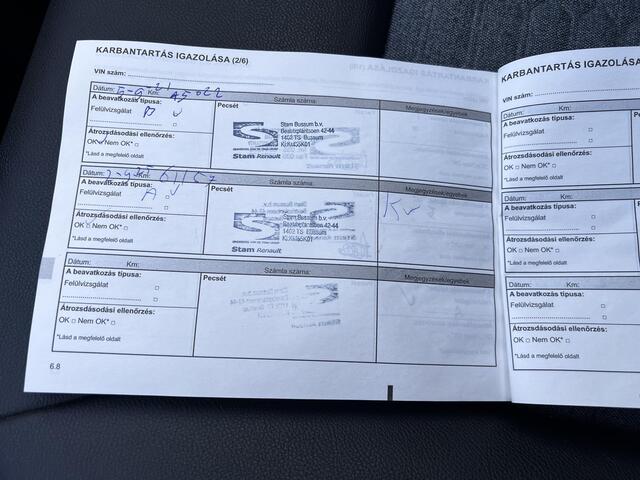 KARBANTARTÁS IGAZOLÁSA (2/6)
VIN szám:
Dátum: Km:
A beavatkozás típusa:
Felülvizsgálat
Átrozsdásodási ellenőrzés:
OK Nem OK*
*Lásd a megfelelő oldalt
Számla száma:
Pecsét
Stam Bussum b.v.
1402 TS Bussum
Stam Renault
Megjegyzések/egyebek
Dátum: Km:
A beavatkozás típusa:
A
Felülvizsgálat
Átrozsdásodási ellenőrzés:
OK Nem OK*
*Lásd a megfelelő oldalt
Számla száma:
Pecsét
Stam Bussum b.v.
1402 TS Bussum
Stam Renault
Megjegyzések/egyebek
Dátum: Km:
A beavatkozás típusa:
Felülvizsgálat
Átrozsdásodási ellenőrzés:
OK Nem OK*
*Lásd a megfelelő oldalt
Számla száma:
Pecsét
Megjegyzések/egyebek
6.8
KARBANTARTÁS IGAZOLÁSA
VIN szám:
Dátum: Km:
A beavatkozás típusa:
Felülvizsgálat
Átrozsdásodási ellenőrzés:
OK Nem OK*
*Lásd a megfelelő oldalt
Dátum: Km:
A beavatkozás típusa:
Felülvizsgálat
Átrozsdásodási ellenőrzés:
OK Nem OK*
*Lásd a megfelelő oldalt
Dátum: Km:
A beavatkozás típusa:
Felülvizsgálat
Átrozsdásodási ellenőrzés:
OK Nem OK*
*Lásd a megfelelő oldalt